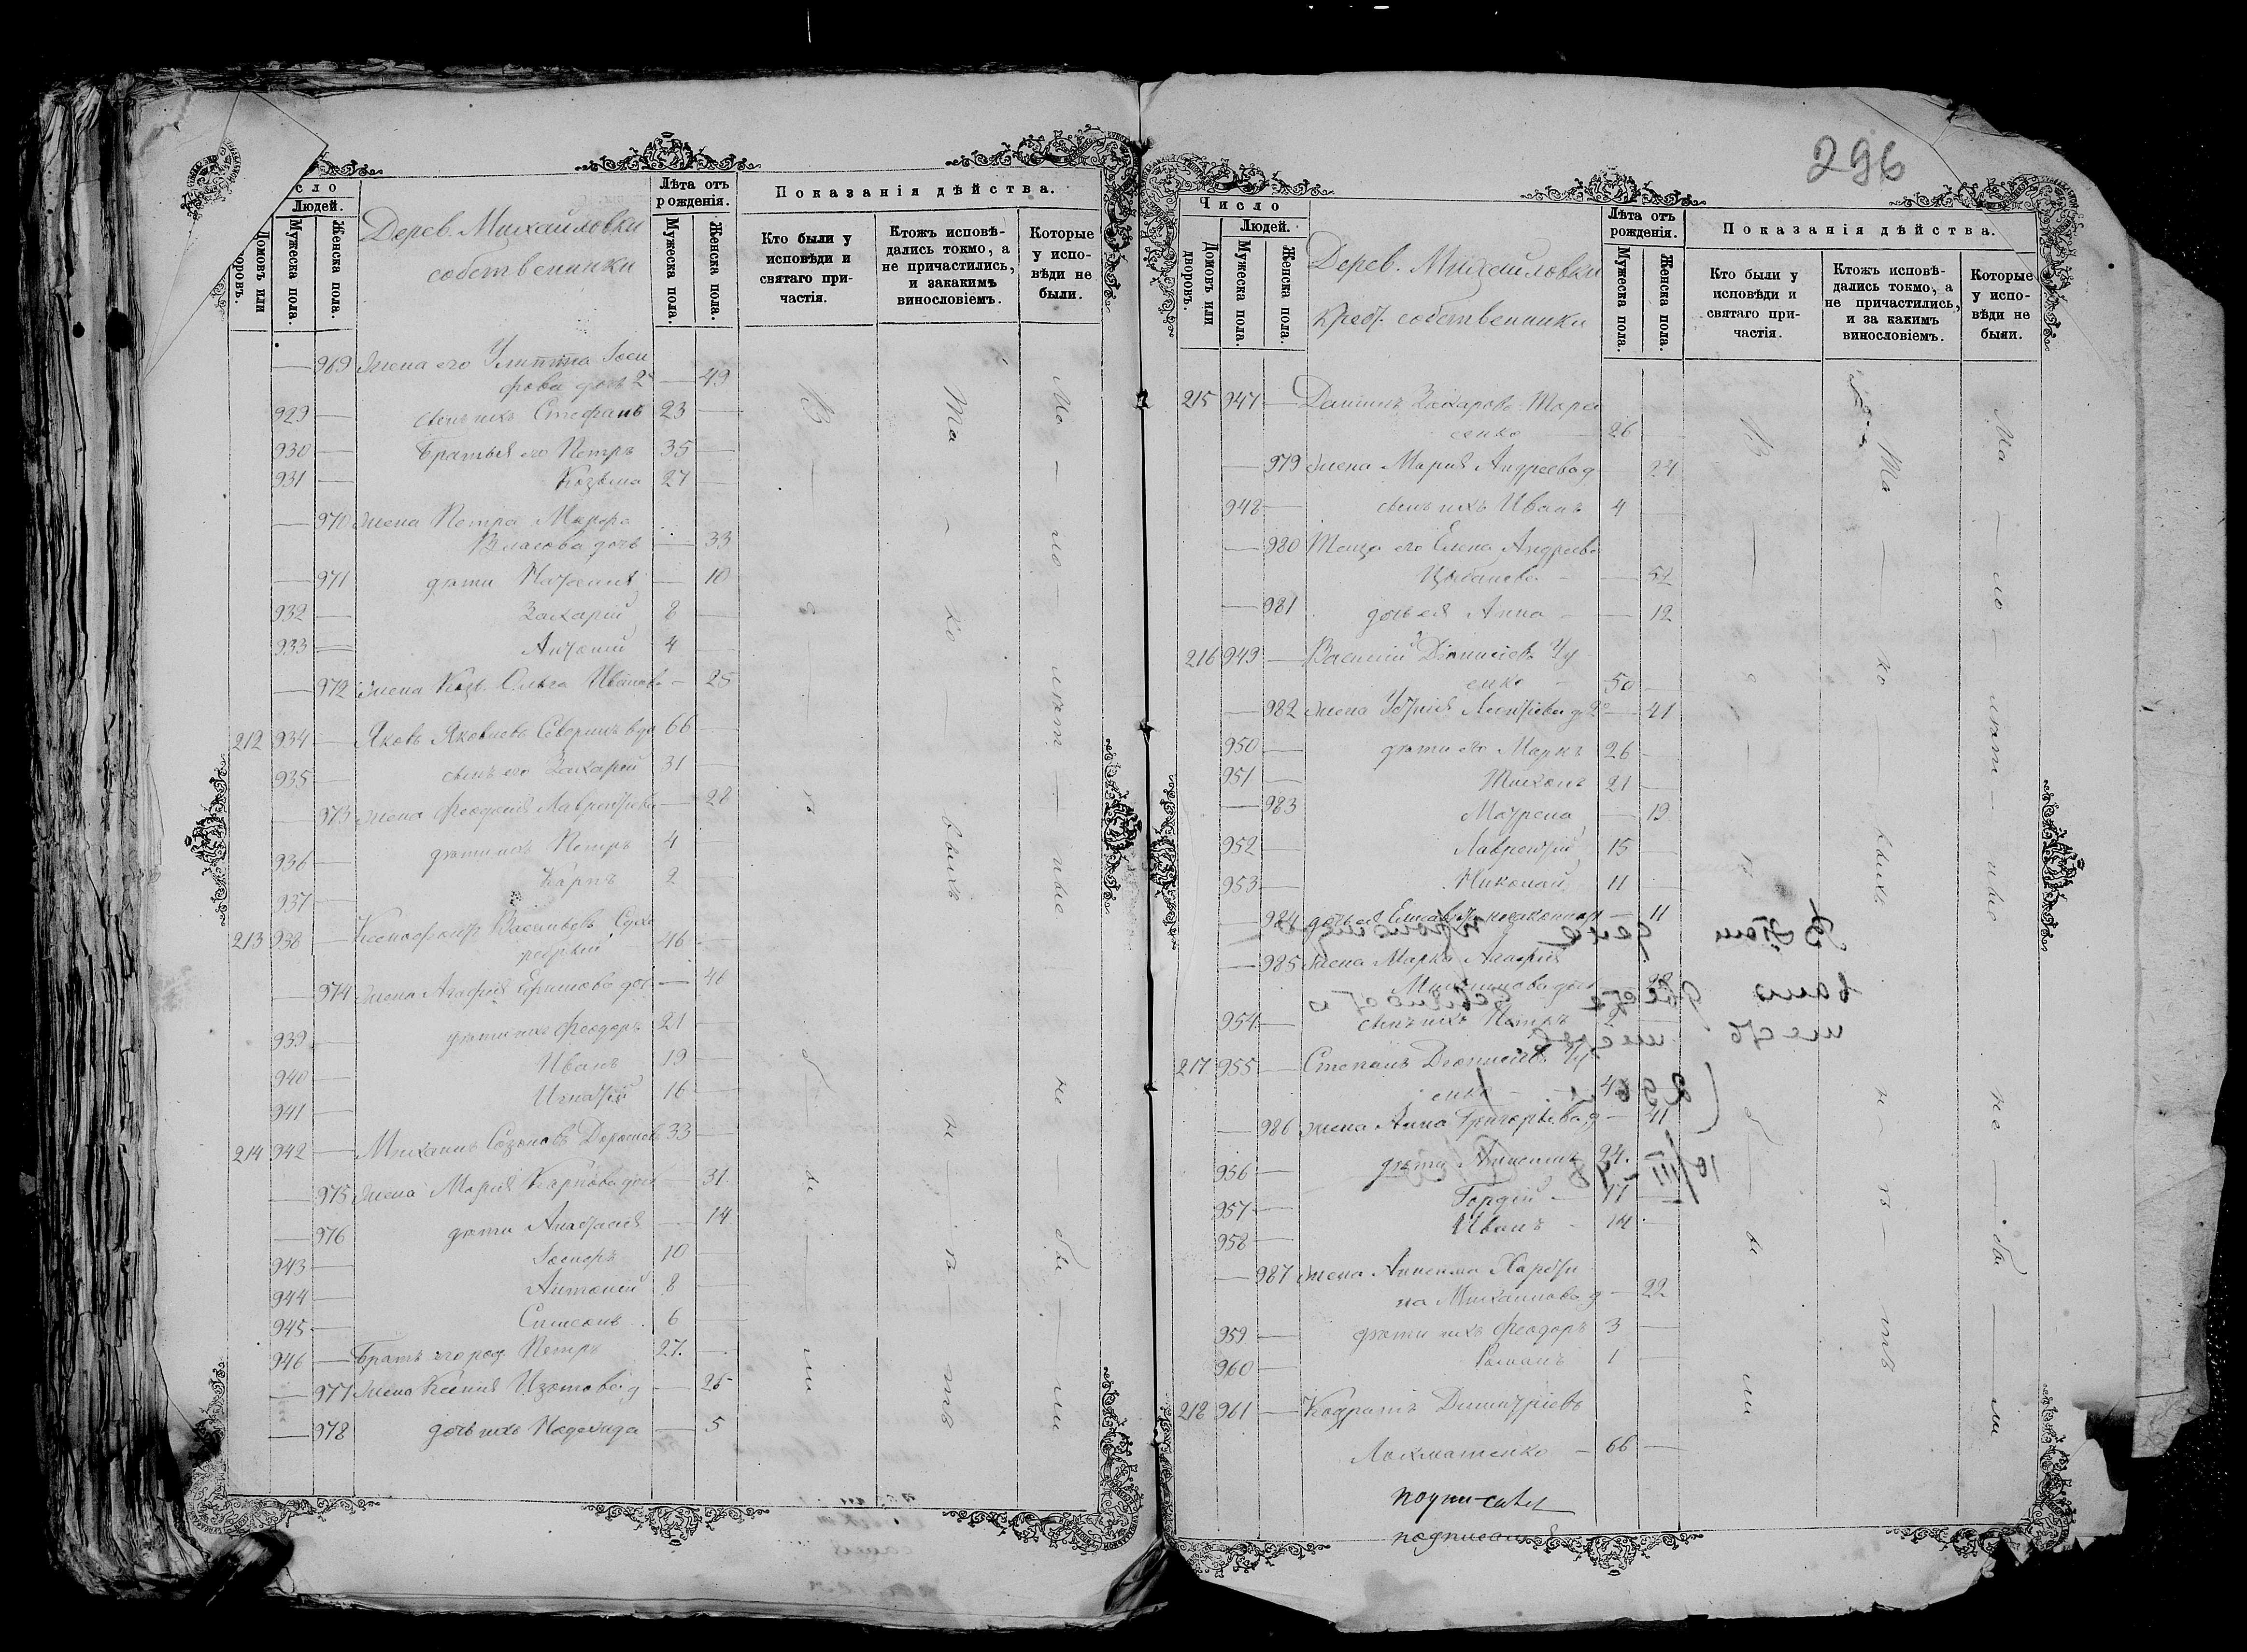 сло
Людей.
Домовъ или
воровъ.
Мужеска пола.
Женска пола.
Дерев. Михайловки
собственики
Лѣта отъ
рожденія.
Мужеска пола.
Женска пола.
Показанія дѣйства.
Кто были у
исповѣди и
святаго при-
частія.
Ктожъ исповѣ-
дались токмо, а
не причастились,
и закакимъ
винословіемъ.
Которые
у испо-
вѣди не
были.
969 Жена его Улита Іоси
фова дочь 2 49
929 сынъ ихъ Стефанъ 23
930 братья его Петръ 35
931 Козьма 27
970 Жена Петра Марфа
Власова дочь 33
971 дѣти Наталія 10
932 Захарій 8
933 Антоній 4
972 Жена Козь. Ольга Иванова 25
212 934 Яковъ Яковлевъ Северинъ вдо 66
935 сынъ его Захарій 31
973 Жена Феодосія Лаврентіева 28
936 дѣти ихъ Петръ 4
937 Карпъ 2
213 938 Ксенофонтъ Васильевъ Сухо
ребрый 46
974 Жена Агафія Ефимова доч. 46
939 дѣти ихъ Феодоръ 21
940 Иванъ 19
941 Игнатій 16
214 942 Михаилъ Созоновъ 33
975 Жена Марія Карпова доч 31
976 дѣти Анастасія 14
943 Іосифъ 10
944 Антоній 8
945 Симеонъ 6
946 Братъ его род. Петръ 27.
977 Жена Ксенія Изотова д 25
978 дочь ихъ Надежда 5
В с ѣ б ы ли
Та ко выхъ н ѣ тъ
Ма ло лѣт ные не бы ли
296
Число
Людей.
Домовъ или
дворовъ.
Мужеска пола.
Женска пола.
Дерев. Михайловки
Крест. собственники
Лѣта отъ
рожденія.
Мужеска пола.
Женска пола.
Показанія дѣйства.
Кто были у
исповѣди и
святаго при-
частія.
Ктожъ исповѣ-
дались токмо, а
не причастились,
и за какимъ
винословіемъ.
Которые
у испо-
вѣди не
были.
215 947 Даніилъ Захаровъ Тара
сенко 26
979 Жена Марія Андреева д 24
948 сынъ ихъ Иванъ 4
980 Теща его Елена Андреева
52
981 дочь ея Анна 12
216 949 Василій Діонисіевъ Чу
енко 50
982 Жена Устинія Леонтіева д. 2 41
950 дѣти его Маркъ 26
951 Тихонъ 21
983 Матрена 19
952 Лаврентій 15
953 Николай 11
984 дочь ея 11
985 Жена Марка Агафія
954 сынъ ихъ Петръ
217 955 Стефанъ Діонисіевъ Чу
енко
986 Жена Анна Григорьева д 41
956 дѣти 24.
957 Гордій 17
958 Иванъ 14
987 Жена
на Михаилова д 22
959 дѣти ихъ Феодоръ 3
960 Романъ 1
218 961 Кодратъ Димитріевъ
Лохматенко 66
В с ѣ б ы ли
Та ко выхъ н ѣ тъ
Ма ло лѣт ные не бы ли